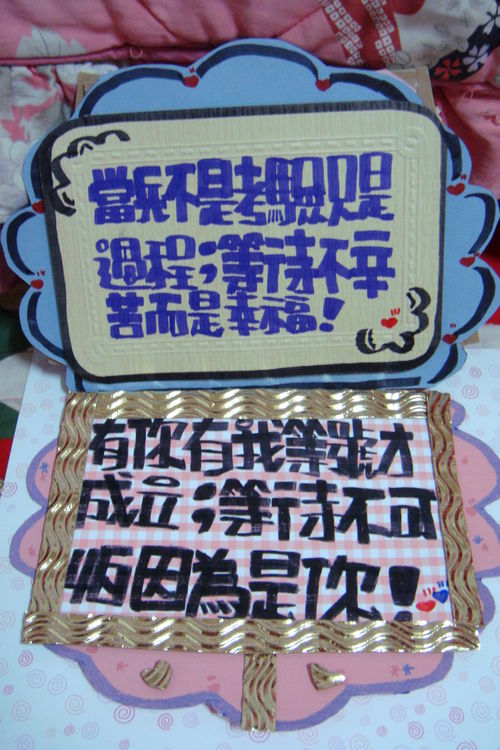 當兵不是考驗只是
過程；等待不辛
苦而是幸福！
有你有我等號才
成立；等待不可
怕因為是你！